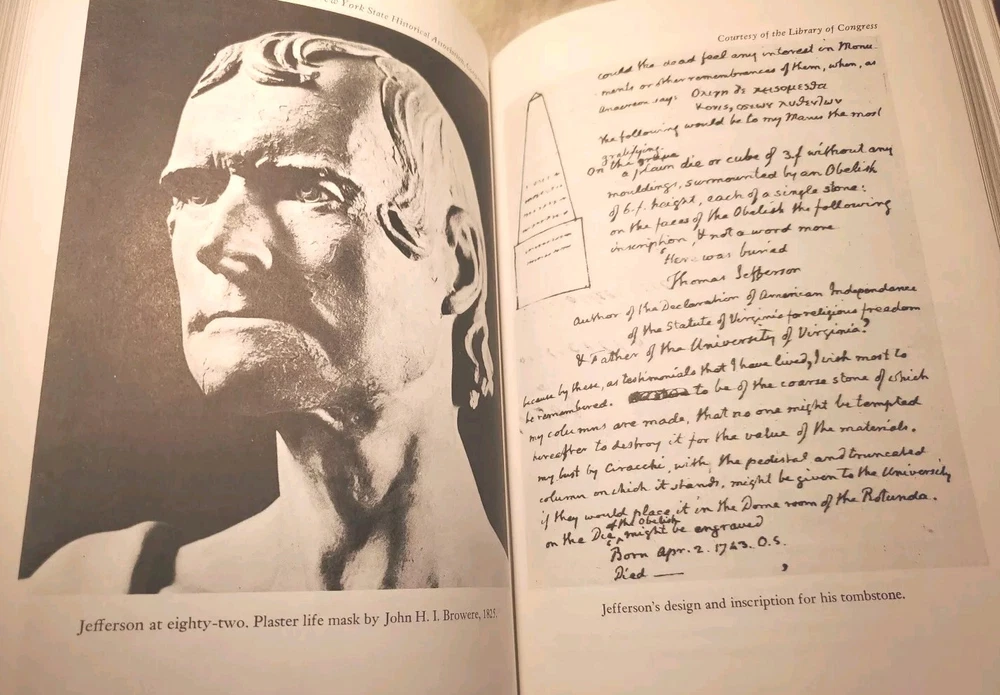 York State Historical Association,
Jefferson at eighty-two. Plaster life mask by John H. I. Browere, 1825.
Courtesy of the Library of Congress
could the dead feel any interest in Monu
ments or other remembrances of them, when, as
Anacreon says Ολιγη δε κεισομεσθα
Κονις, οστεων λυθεντων
the following would be to my Manes the most
gratifying.
On the grave
a plain die or cube of 3.f without any
mouldings, surmounted by an Obelisk
of 6.f. height, each of a single stone:
on the faces of the Obelisk the following
inscription, & not a word more
Here was buried
Thomas Jefferson
Author of the Declaration of American Independance
of the Statute of Virginia for religious freedom
& Father of the University of Virginia.
because by these, as testimonials that I have lived, I wish most to
be remembered. to be of the coarse stone of which
my columns are made, that no one might be tempted
hereafter to destroy it for the value of the materials.
my bust by Ciracchi, with the pedestal and truncated
column on which it stands, might be given to the University
if they would place it in the Dome room of the Rotunda.
on the Die of the Obelisk might be engraved
Born Apr. 2. 1743. O.S.
Died —
Jefferson's design and inscription for his tombstone.